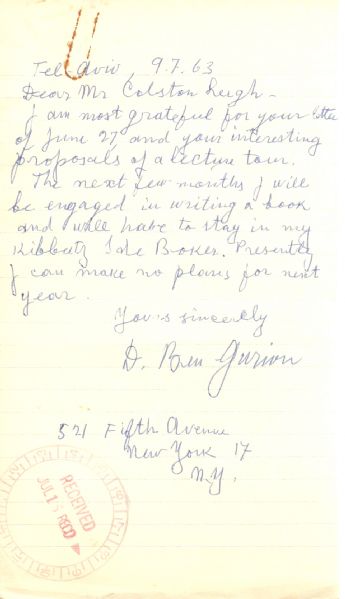 Tel Aviv, 9.7.63
Dear Mr Colston Leigh -
I am most grateful for your letter
of June 27, and your interesting
proposals of a lecture tour.
The next few months I will
be engaged in writing a book
and will have to stay in my
Kibbutz Sde Boker. Presently
I can make no plans for next
year.
Yours sincerely
D. Ben Gurion
521 Fifth Avenue
New York 17
N.Y.
RECEIVED
JUL 15 RECD